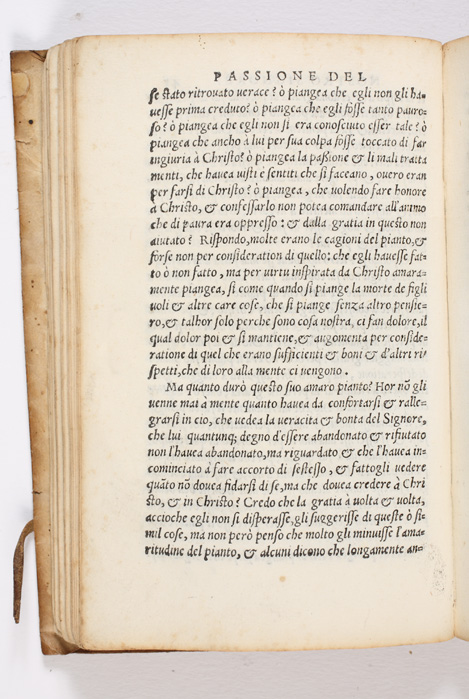 PASSIONE DEL
se stato ritrouato uerace? ò piangea che egli non gli ha-
uesse prima creduto? ò piangea che egli fosse tanto pauro-
so? ò piangea che egli non si era conosciuto esser tale? ò
piangea che anchò à lui per sua colpa fosse toccato di far
ingiuria à Christo? ò piangea la passione & li mali tratta
menti, che hauea uisti e sentiti che si faceano, ouero eran
per farsi di Christo? ò piangea, che uolendo fare honore
à Christo, & confessarlo non potea comandare all'animo
che di paura era oppresso: & dalla gratia in questo non
aiutato? Rispondo, molte erano le cagioni del pianto, &
forse non per consideration di quello: che egli hauesse fat-
to ò non fatto, ma per uirtu inspirata da Christo amara-
mente piangea, si come quando si piange la morte de figli
uoli & altre care cose, che si piange senza altro pensie-
ro, & talhor solo perche sono cosa nostra, ci fan dolore, il
qual dolor poi & si mantiene, & augomenta per conside-
ratione di quel che erano sufficienti & boni & d'altri ri
spetti, che di loro alla mente ci uengono.
Ma quanto durò questo suo amaro pianto? Hor nō gli
uenne mai à mente quanto hauea da confortarsi & ralle-
grarsi in cio, che uedea la ueracita & bonta del Signore,
che lui quantunq; degno d'essere abandonato & rifiutato
non l'hauea abandonato, ma riguardato & che l'hauea in-
cominciato à fare accorto di sestesso, & fattogli uedere
quāto nō douea fidarsi di se, ma che douea credere à Chri
sto, & in Christo? Credo che la gratia à uolta & uolta,
accioche egli non si disperasse, gli suggerisse di queste ò si-
mil cose, ma non però penso che molto gli minuisse l'ama-
ritudine del pianto, & alcuni dicono che longamente an-